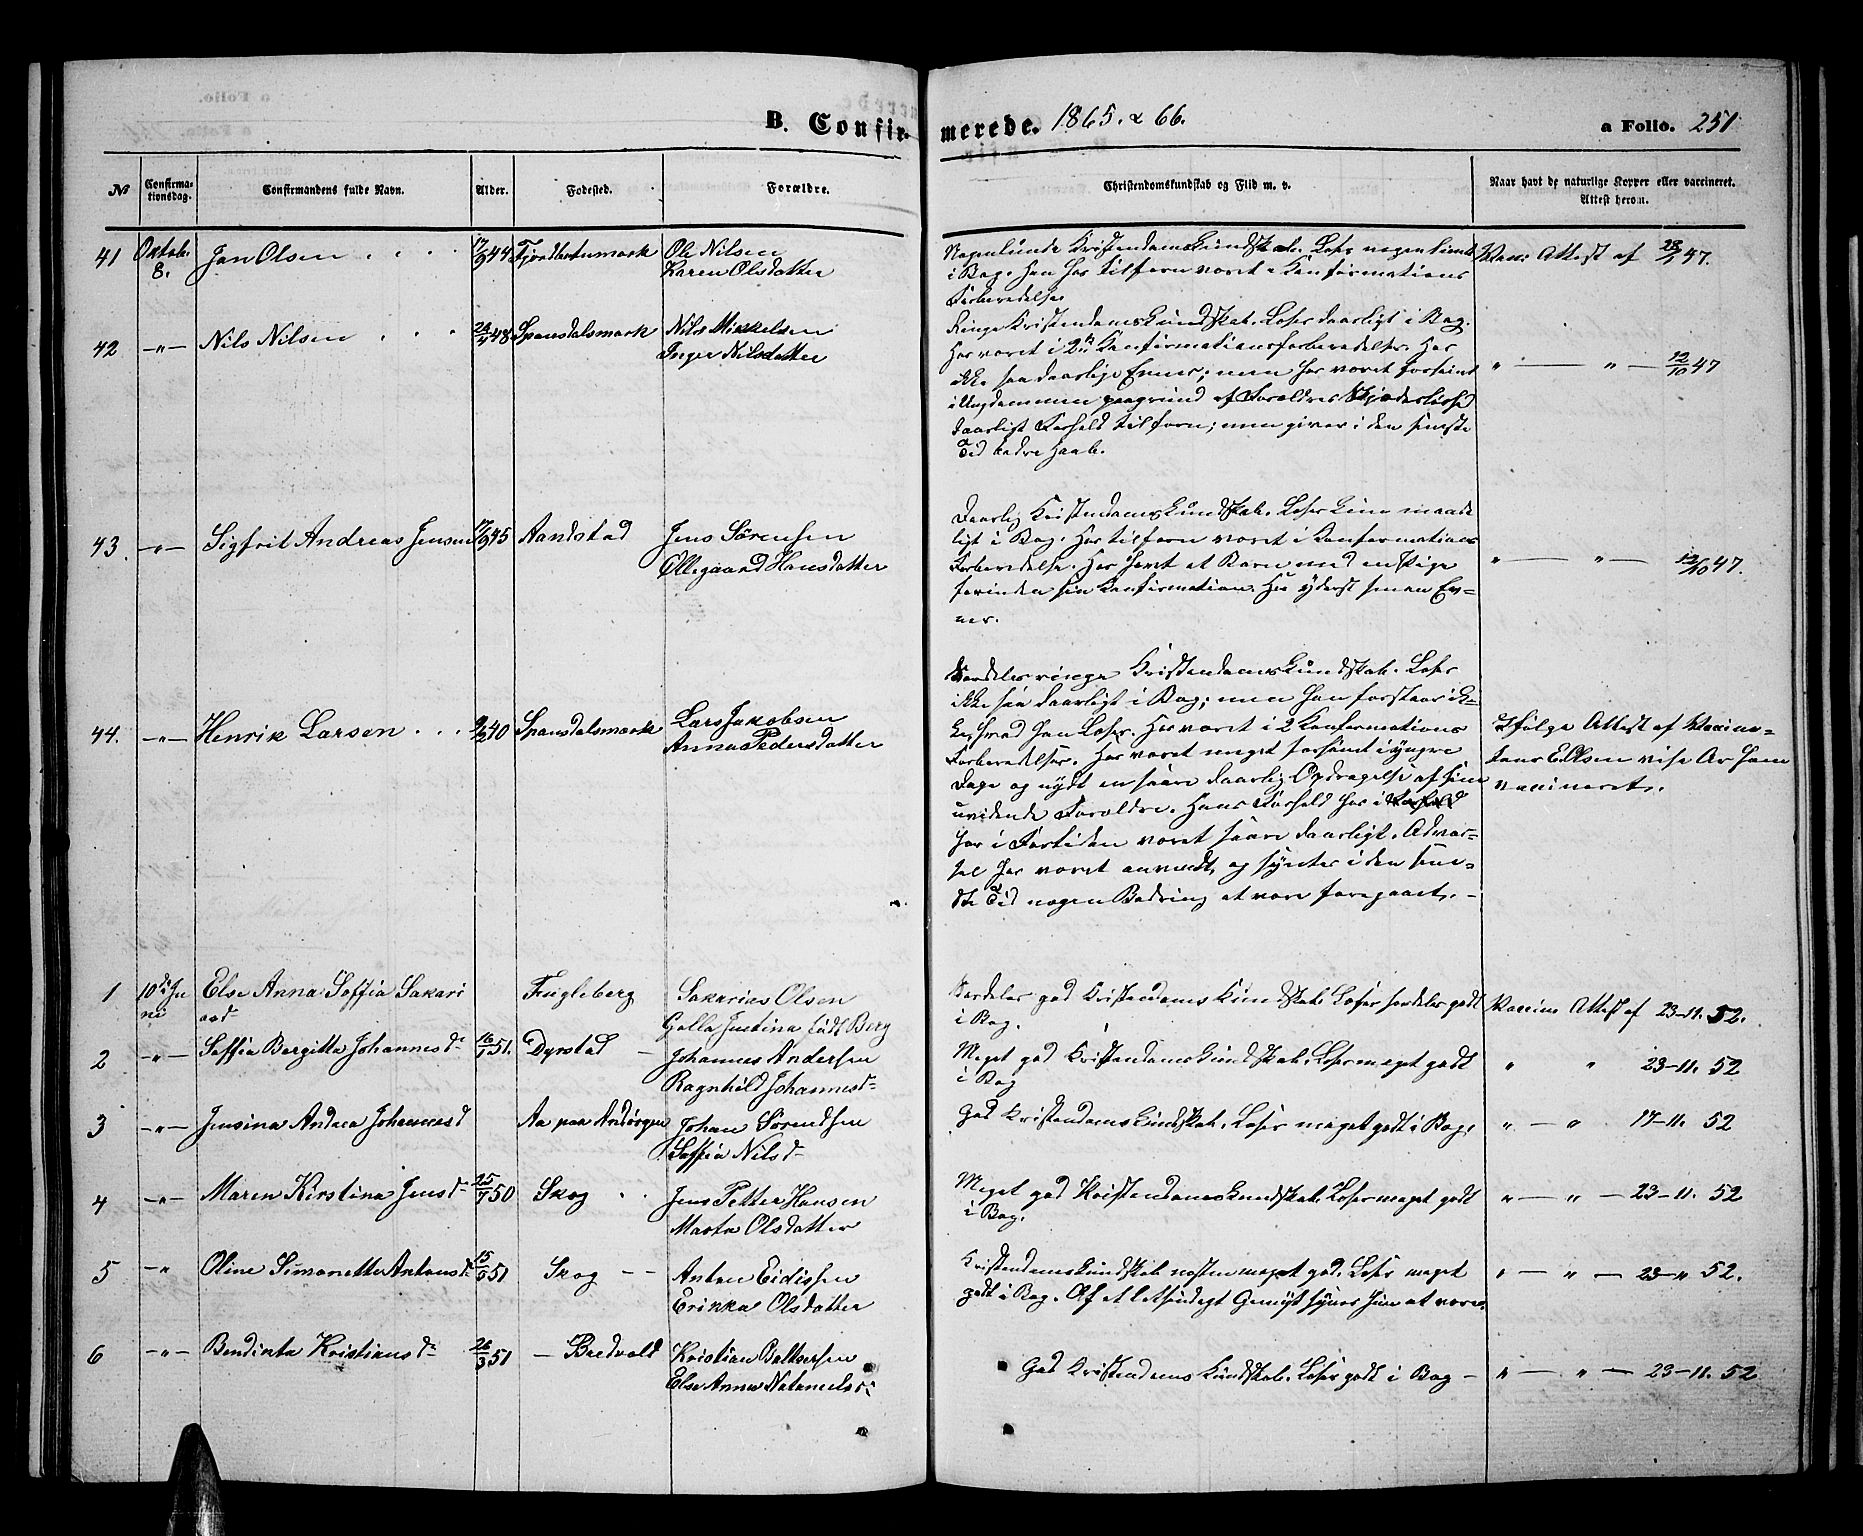 B. Confirmerede. 1865. & 66.
a Folio. 251
No
Confirma-
tionsdag.
Confirmandens fulde Navn.
Alder.
Fødested.
Forældre.
Christendomskundskab og Flid m. v.
Naar havt de naturlige Kopper eller vaccineret.
Attest herom.
41 Oktob. 8. Jon Olsen 17/9 44 Ole Nilsen
Karen Olsdatter
Nogenlunde Kristendomskundskab. Læser nogenlunde
i Bog. Han har tilforn været i Konfirmations
Forberedelse
Vac: Attest af 47.
42 -"- Nils Nilsen 24/4 48 Spansdalsmark Nils Mikkelsen
Inger Nilsdatter
Ringe Kristendomskundskab. Læser daarligt i Bog.
Har været i 2 Konfirmationsforberedelser. Har
ikke saa daarlige Evner; men har været forsømt
i Ungdommen paagrund af Forældres
daarligt Forhold tilforn; men giver i den seneste
Tid bedre Haab.
" " 12/10 47
43. -"- Sigfrit Andreas Jensen 17/9 45 Aandstad Jens Sørensen
Ollegaard Hansdatter
Daarlig Kristendomskundskab. Læser kun maade
ligt i Bog. Har tilforn været i Konfirmations
Forberedelse. Har havt et Barn med en Pige
forinden sin Konfirmation. Har yderst smaa Ev-
ner.
" " 12/10 47.
44. -"- Henrik Larsen 9/2 40 Spansdalsmark Lars Jakobsen
Anna Pedersdatter
Særdeles ringe Kristendomskundskab. Læser
ikke saa daarligt i Bog; men han forstaar ik-
ke, hvad han læser. Har været i 2 Konfirmations
Forberedelser. Har været meget forsømt i yngre
Dage og nydt en saare daarlig Opdragelse af sine
uvidende Forældre. Hans Forhold har i Forhold
har i Fortiden været saare daarligt. Advar-
sel har været anvendt, og synes i den sene-
ste Tid nogen Bedring at være foregaaet. -
Ifølge Attest af Vaccina-
vaccineret.
1 10de Ju
ni Else Anna Soffia Sakari
asd Fugleberg Sakarias Olsen
Golla Justina født Berg
Særdeles god Kristendoms Kundskab. Læser særdeles godt
i Bog.
Vaccine Attest af 23-11. 52.
2 -"- Soffia Bergitta Johannesd 16/1 51. Dyrstad Johannes Andersen
Ragnhild Johannesd
Meget god Kristendomskundskab. Læser meget godt
i Bog
" " 23-11. 52
3 -"- Jensina Andrea Johannesd Aa paa Andørgen Johan Sørendsen
Soffia Nilsd
God Kristendomskundskab. Læser meget godt i Bog.
" " 17-11. 52
4 -"- Maren Kirstina Jensd 25/7 50 Skog Jens Petter Hansen
Marta Olsdatter
Meget god Kristendomskundskab. Læser meget godt
i Bog.
" " 23-11. 52
5 -" Oline Simonette Antonsd 15/9 51 Skog Anton Eidissen
Erikka Olsdatter
Kristendomskundskab næsten meget god. Læser meget
godt i Bog. Af et letsindigt Gemyt synes hun at være.
" " 23-" 52.
6 -"- Bendikta Kristiansd 26/3 51 Bredvold Kristian Baltsersen
Else Anna Natanielsd:
God Kristendoms Kundskab. Læser godt i Bog -
" " 23-11. 52